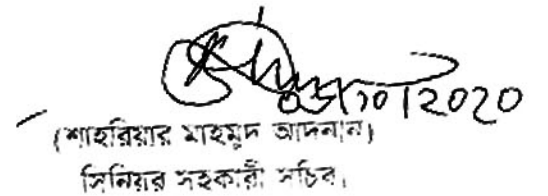 ০৫/১০/2020
(শাহরিয়ার মাহমুদ আদনান)
সিনিয়র সহকারী সচিব।